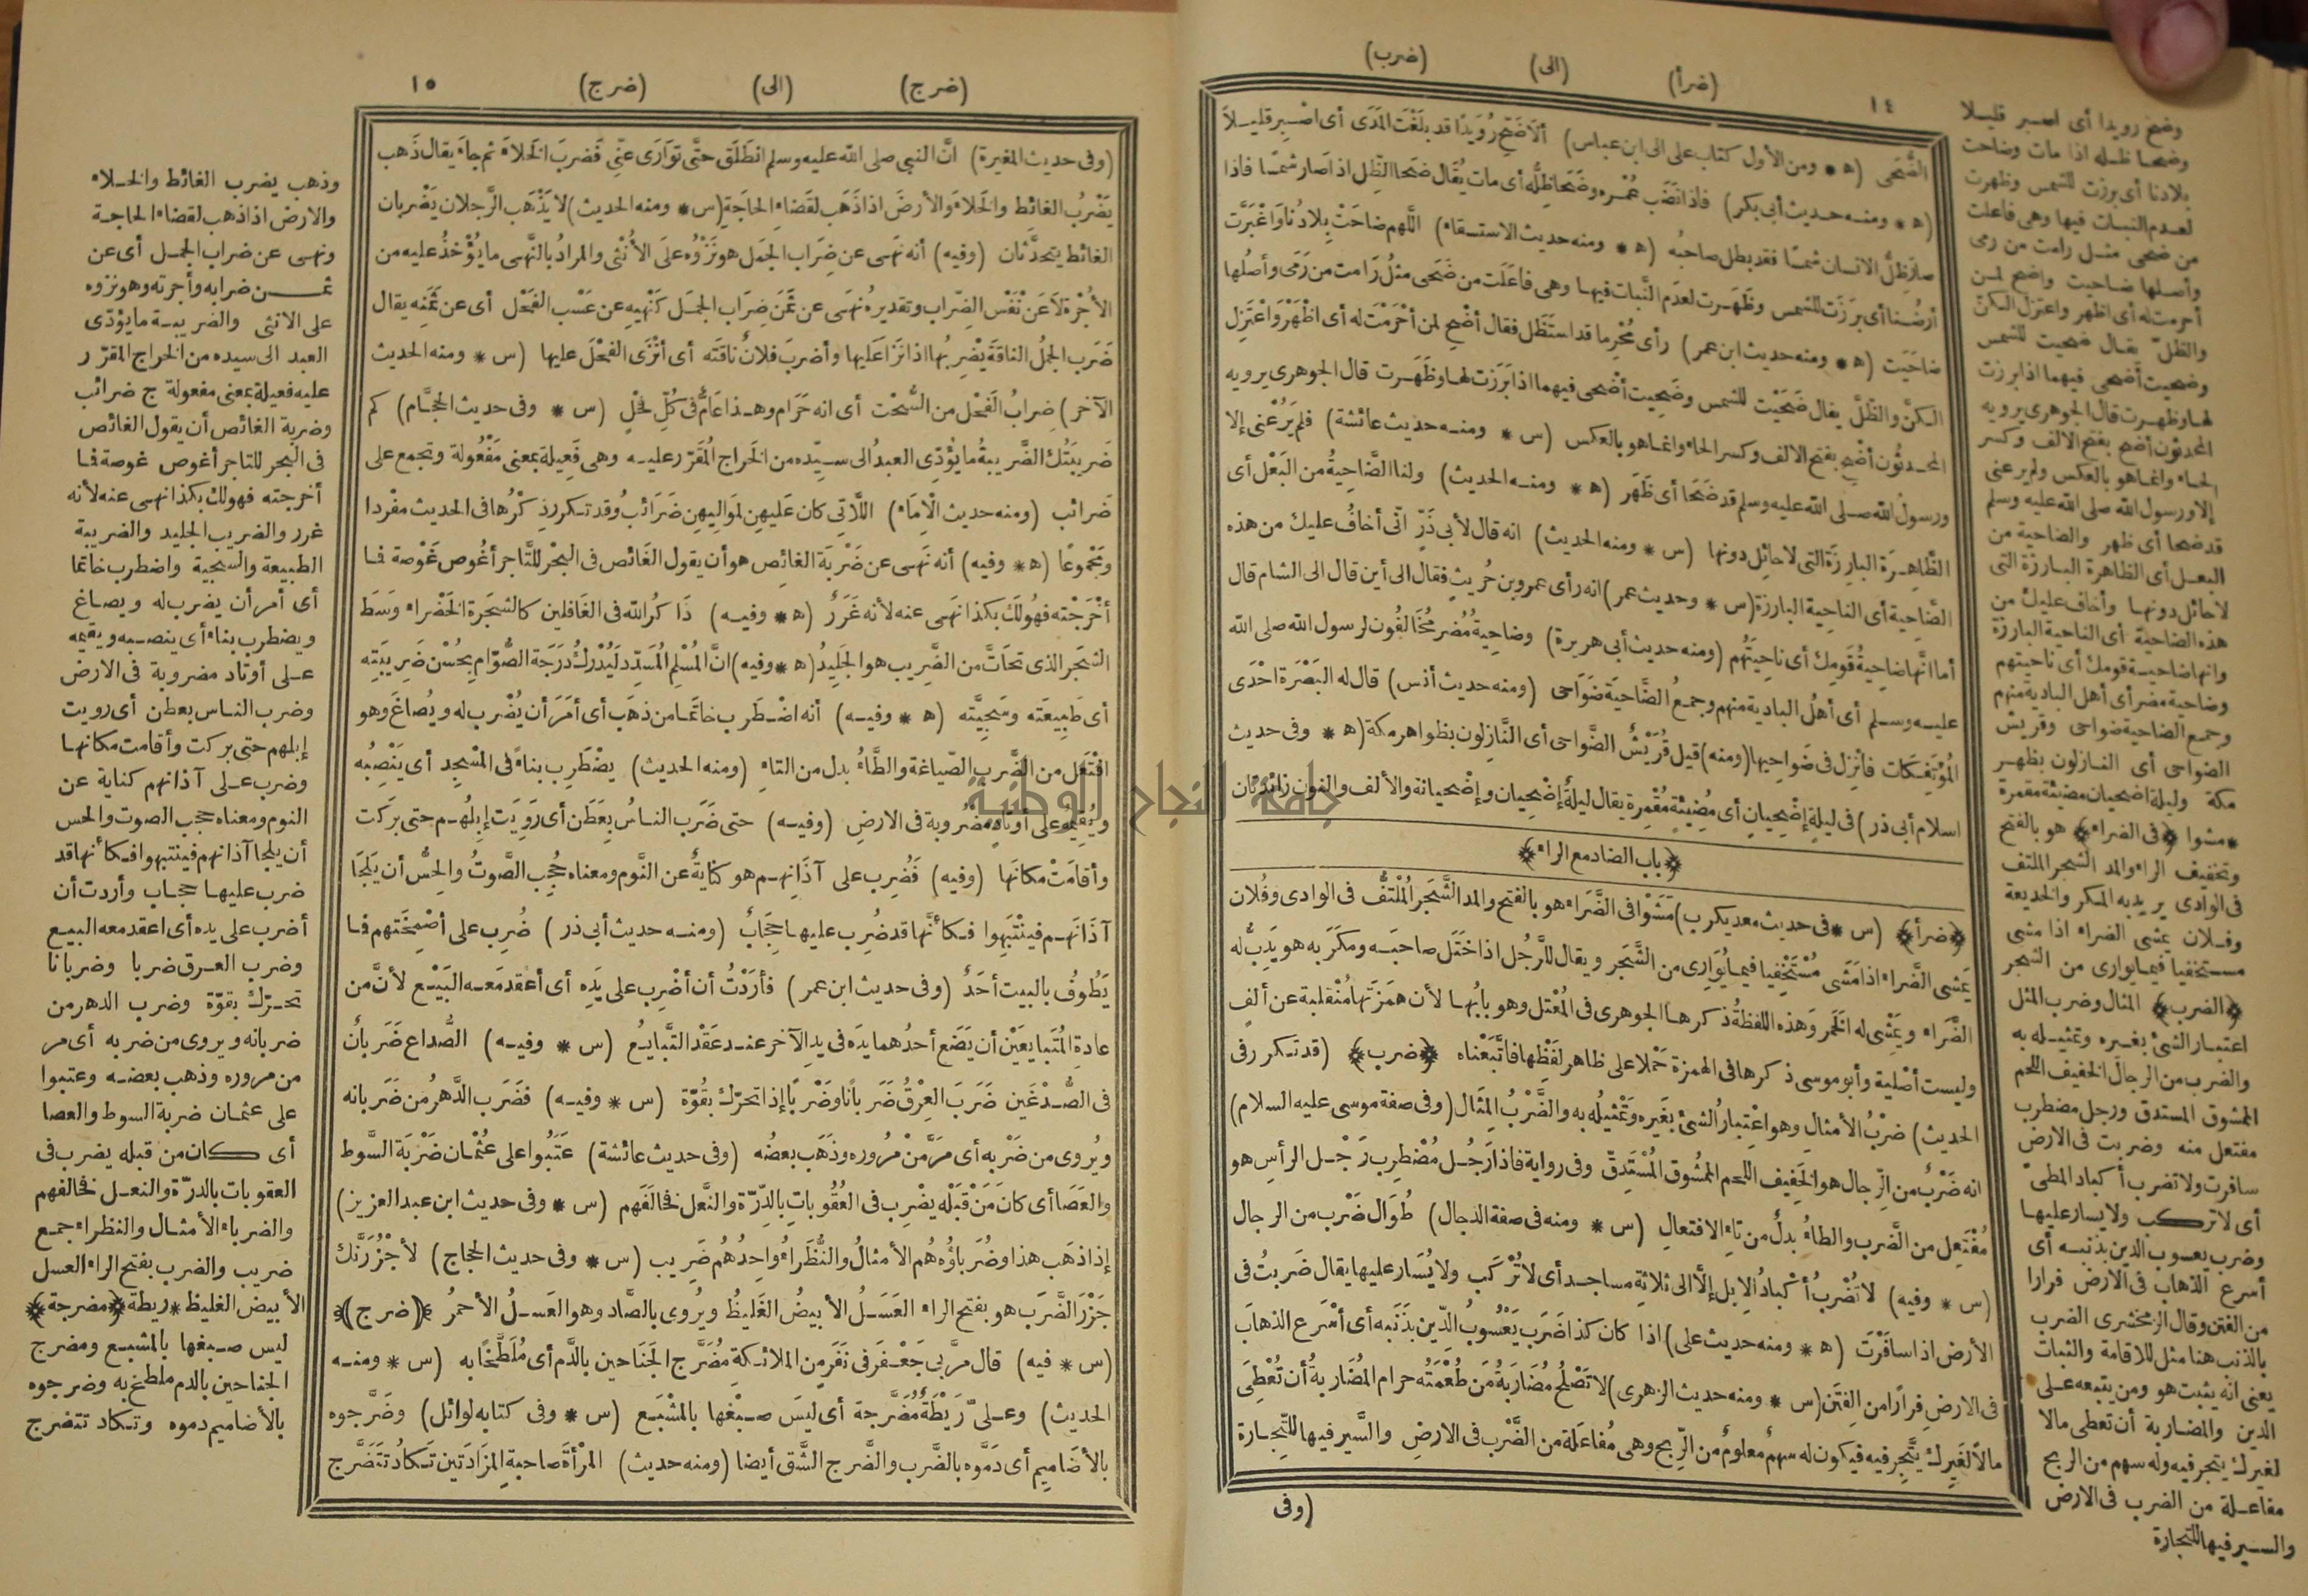 ١٤
(ضرأ)
(الى)
(ضرب)
الضُّحَى (ه * ومن الأول كتاب على الى ابن عباس) ألَا ضَحِّ رُوَيْدًا قد بلَغْتَ المَدَى أى اصْبِر قليلاً
(ه * ومنه حديث أبى بكر) فاذا نَضَب عُمْره وضَحَا ظِلُّه أى مات يُقال ضَحَا الظِّل اذا صار شمسًا فاذا
صار ظِلُّ الانسان شمسًا فقد بطل صاحبُه (ه * ومنه حديث الاستسقاء) اللّهم ضاحَتْ بِلادُنا واغْبَرَّت
أرضُنا أى برَزَت للشمس وظَهَرت لعدم النَّبات فيها وهى فاعَلَت من ضَحَى مثلُ رَامت من رَمَى وأصلُها
ضاحَيَت (ه * ومنه حديث ابن عمر) رأى مُحْرِما قد استَظَل فقال أضْحِ لمن أحْرَمْتَ له أى اظْهَرْ واعْتَزِل
الكنَّ والظِّلَّ يقال ضَحَيْت للشمس وضَحِيت أضْحى فيهما اذا بَرَزت لها وظَهَرت قال الجوهرى يرويه
المحدثُون أضْحِ بفتح الالف وكسر الحاء وانما هو بالعكس (س * ومنه حديث عائشة) فلم يَرُعْنى إلا
ورسولُ الله صلى الله عليه وسلم قد ضَحَا أى ظَهَر (ه * ومنه الحديث) ولنا الضَّاحِيةُ من البَعْل أى
الظَّاهِرَة البارِزَة التى لا حائِل دونها (س * ومنه الحديث) انه قال لأبى ذَرّ انّى أخافُ عليك من هذه
الضَّاحِية أى الناحِية البارزة (س * وحديث عمر) انه رأى عمرو بن حُرَيث فقال الى أين قال الى الشام قال
أما انَّها ضاحِيةُ قَومِك أى ناحِيَتُهم (ومنه حديث أبى هريرة) وضاحِيةُ مُضَر مُخَالفُون لرسول الله صلى الله
عليه وسلم أى أهلُ البادية منهم وجمعُ الضَّاحيَة ضَوَاحى (ومنه حديث أنس) قال له البَصْرَة احْدَى
المُؤْتَفِكَات فانْزِل فى ضَواحِيها (ومنه) قيل قُرَيْشُ الضَّواحى أى النَّازِلون بظواهر مكة (ه * وفى حديث
اسلام أبى ذر) فى ليلةٍ إضْحِيانٍ أى مُضِيئةٍ مُقْمِرة يقال ليلةٌ إضْحِيان وإضْحِيانة والألف والنون زائدتان
﴿باب الضاد مع الراء﴾
﴿ضرأ﴾ (س * فى حديث معديكرب) مَشَوْا فى الضَّرَاء هو بالفتح والمد الشَّجَر المُلْتفُّ فى الوادى وفُلان
يَمْشى الضَّراء اذا مَشَى مُسْتَخْفِيا فيما يُوَارِى من الشَّجَر ويقال للرَّجُل اذا خَتَل صاحبَه ومكَرَ به هو يَدِبُّ له
الضَّرَاء ويَمْشِى له الخَمَر وهَذه اللفظةُ ذكرها الجوهرى فى المُعْتل وهو بابُها لأن همَزَتها مُنْقلبة عن ألف
وليست أصْلية وأبو موسى ذكرها فى الهمزة حَمْلا على ظاهر لفَظِها فاتَّبَعْناه ﴿ضرب﴾ (قد تكرر فى
الحديث) ضرْبُ الأمثال وهو اعْتِبارُ الشئ بغَيره وتَمْثيلُه به والضَّرْبُ المِثَال (وفى صفة موسى عليه السلام)
انه ضَرْبٌ من الرِّجال هو الخَفِيف اللحم المَشُوق المُسْتَدِقّ وفى رواية فاذا رَجُل مُضْطرِب رَجْل الرأسِ هو
مُفْتَعِل من الضَّرب والطاءُ بدلٌ من تاءِ الافتعال (س * ومنه فى صفة الدجال) طُوَال ضَرْب من الرجال
(س * وفيه) لا تُضْرَبُ أكْبادُ الإبِل إلَّا الى ثلاثةِ مساجد أى لا تُرْكَب ولا يُسَار عليها يقال ضَربتُ فى
الأرض اذا سافَرْتَ (ه * ومنه حديث على) اذا كان كذا ضَرَب يَعْسُوبُ الدِّين بذَنَبه أى أسْرَع الذهابَ
فى الارضِ فِرارًا من الفِتَن (س * ومنه حديث الزهرى) لا تَصْلُحُ مُضَارَبةُ مَن طُعْمَتُه حرام المُضَارَبةُ أن تُعْطِىَ
مالاً لغَيرِك يتَّجِر فيه فيكون له سهمٌ معلومٌ من الرِّبح وهى مُفاعَلة من الضَّرْب فى الارضِ والسَّير فيها للتِّجارة
(وفى
وضح رويدا أى اصبر قليلا
وضحا ظله اذا مات وضاحت
بلادنا أى برزت للشمس وظهرت
لعدم النبات فيها وهى فاعلت
من ضحى مثل رامت من رمى
وأصلها ضاحيت واضح لمن
أحرمت له أى اظهر واعتزل الكنّ
والظلّ يقال ضحيت للشمس
وضحيت أضحى فيهما اذا برزت
لها وظهرت قال الجوهرى يرويه
المحدثون أضح بفتح الالف وكسر
الحاء وانما هو بالعكس ولم يرعنى
إلا ورسول الله صلى الله عليه وسلم
قد ضحا أى ظهر والضاحية من
البعل أى الظاهرة البارزة التى
لا حائل دونها وأخاف عليك من
هذه الضاحية أى الناحية البارزة
وانها ضاحية قومك أى ناحيتهم
وضاحية مضر أى أهل البادية منهم
وجمع الضاحية ضواحى وقريش
الضواحى أى النازلون بظهر
مكة وليلة اضحيان مضيئة مقمرة
*مشوا ﴿فى الضراء﴾ هو بالفتح
وتخفيف الراء والمد الشجر الملتف
فى الوادى يريد به المكر والخديعة
وفلان يمشى الضراء اذا مشى
مستخفيا فيما يوارى من الشجر
﴿الضرب﴾ المثال وضرب المثل
اعتبار الشئ بغيره وتمثيله به
والضرب من الرجال الخفيف اللحم
المشوق المستدق ورجل مضطرب
مفتعل منه وضربت فى الارض
سافرت ولا تضرب أكباد المطىّ
أى لا تركب ولا يسار عليها
وضرب يعسوب الدين بذنبه أى
أسرع الذهاب فى الارض فرارا
من الفتن وقال الزمخشرى الضرب
بالذنب هنا مثل للاقامة والثبات
يعنى انه يثبت هو ومن يتبعه على
الدين والمضاربة أن تعطى مالا
لغيرك يتجر فيه وله سهم من الربح
مفاعلة من الضرب فى الارض
والسير فيها للتجارة
(ضرج)
(الى)
(ضرج)
١٥
(وفى حديث المغيرة) انَّ النبى صلى الله عليه وسلم انطَلَق حتَّى تَوَارَى عنِّى فَضَربَ الخَلاءَ ثم جاءَ يقال ذَهب
يَضْرِبُ الغائِط والخَلاءَ والأرضَ اذا ذَهَب لقَضَاءِ الحاجَةِ (س * ومنه الحديث) لا يَذْهَب الرَّجلان يَضْرِبان
الغائط يتحدَّثان (وفيه) أنه نَهَى عن ضِرَاب الجَمَل هو نَزْوُه على الأُنْثى والمرادُ بالنَّهى ما يُؤْخَذُ عليه من
الأُجْرة لا عَن نَفْس الضِّراب وتقديره نَهى عن ثَمَن ضِرَاب الجمَل كَنَهْيِه عن عَسْب الفَحْل أى عن ثَمَنِه يقال
ضَرَب الجمَلُ الناقَة يَضْرِبُها اذا نَزَا عَليها وأضرَب فلانٌ ناقَتَه أى أنْزَى الفَحْلَ عليها (س * ومنه الحديث
الآخر) ضِرابُ الفَحْل من السُّحْت أى انه حَرَام وهذا عَامٌّ فى كلِّ فَحْلٍ (س * وفى حديث الحجَّام) كم
ضَرِيبَتُك الضَّرِيبةُ ما يُؤدِّى العبدُ الى سيِّده من الخَراج المُقَرّر عليه وهى فَعِيلة بمعنى مَفْعُولة وتجمع على
ضَرائب (ومنه حديث الاِمَاء) اللَّاتى كان عَليهِن لمَوالِيهِن ضَرَائبُ وقد تكرر ذِكْرُها فى الحديث مفْردا
ومَجْموعًا (ه * وفيه) أنه نَهَى عن ضَرْبَة الغائِص هو أن يقول الغَائص فى البحْر للتَّاجر أغُوص غَوْصة فما
أخْرَجْته فهُو لَك بكذا نَهَى عنه لأنه غَرَرٌ (ه * وفيه) ذَاكُر الله فى الغَافلين كالشجَرة الخَضْراء وَسَط
الشجَر الذى تَحَاتَّ من الضَّرِيب هو الجَلِيدُ (ه * وفيه) انَّ المُسْلم المُسَدِّد لَيُدْرِكُ دَرَجَة الصُّوّام بِحُسْن ضَرِيبَتِه
أى طَبِيعَته وسَجِيَّته (ه * وفيه) أنه اضْطَرب خاتَمًا من ذهَب أى أمَرَ أن يُضْرب له ويُصاغَ وهو
افْتَعل من الضَّرب الصِّياغة والطَّاءُ بدل من التاءِ (ومنه الحديث) يضْطَرِب بناءً فى المسْجِد أى يَنْصِبُه
ويُقِيمُه على أوتَادٍ مَضْروبة فى الارضِ (وفيه) حتى ضَرَب الناسُ بعَطَن أى رَوِيَت إبلُهم حتى بَركَت
وأقامَتْ مكانَها (وفيه) فَضُرِب على آذَانِهم هو كنايةٌ عن النَّوم ومعناه حُجِب الصَّوتُ والحِسُّ أن يَلِجَا
آذَانَهم فيَنْتَبِهوا فكأنَّها قد ضُرِب عليها حِجَابٌ (ومنه حديث أبى ذر) ضُرِب على أصْمِخَتهم فما
يَطُوفُ بالبيت أحَدٌ (وفى حديث ابن عمر) فأرَدْتُ أن أضْرِب على يَدِه أى أعقد مَعه البَيْع لأنَّ من
عادةِ المُتَبايعَيْن أن يَضَع أحدُهما يدَه فى يدِ الآخر عند عَقْد التَّبايُع (س * وفيه) الصُّداع ضَرَبانٌ
فى الصُّدْغَين ضَرَبَ العِرْقُ ضَرَبانًا وضَرْبًا إذا تحرّك بقُوّة (س * وفيه) فضَرَب الدَّهرُ من ضَرَبانه
ويُروى من ضَرْبه أى مَرَّ مْن مُروره وذَهَب بعضُه (وفى حديث عائشة) عَتَبُوا على عُثْمان ضَرْبَة السَّوط
والعَصَا أى كانَ مَنْ قَبْلَه يضْرِب فى العُقُوباتِ بالدِّرّة والنَّعل فخالَفَهم (س * وفى حديث ابن عبد العزيز)
إذا ذهَب هذا وضُرَباؤُه هُم الأمثالُ والنُّظَراءُ واحِدُهُم ضَرِيب (س * وفى حديث الحجاج) لأَجْزُرَنَّك
جَزْرَ الضَّرَب هو بفتح الراء العَسَلُ الأبيضُ الغَليظُ ويُروى بالصَّاد وهو العَسلُ الأحمرُ ﴿ضرج﴾
(س * فيه) قال مرَّ بى جَعْفَر فى نَفَرٍ من الملائكةِ مُضَرَّج الجَنَاحين بالدَّم أى مُلَطَّخًا به (س * ومنه
الحديث) وعلىّ رَيْطَةٌ مُضَرَّجة أى ليسَ صبْغها بالمشْبَع (س * وفى كتابه لوائل) وضَرَّجوه
بالأضَامِيم أى دَمَّوه بالضَّرب والضَّرج الشَّق أيضا (ومنه حديث) المرْأة صاحبةِ المزَادَتَين تكادُ تتَضَرَّج
وذهب يضرب الغائط والخلاء
والارض اذا ذهب لقضاء الحاجة
ونهى عن ضراب الجمل أى عن
ثمن ضرابه وأجرته وهو نزوه
على الانثى والضريبة ما يؤدّى
العبد الى سيده من الخراج المقرّر
عليه فعيلة بمعنى مفعولة ج ضرائب
وضربة الغائص أن يقول الغائص
فى البحر للتاجر أغوص غوصة فما
أخرجته فهو لك بكذا نهى عنه لأنه
غرر والضريب الجليد والضريبة
الطبيعة والسجية واضطرب خاتما
أى أمر أن يضرب له ويصاغ
ويضطرب بناء أى ينصبه ويقيمه
على أوتاد مضروبة فى الارض
وضرب الناس بعطن أى رويت
إبلهم حتى بركت وأقامت مكانها
وضرب على آذانهم كناية عن
النوم ومعناه حجب الصوت والحس
أن يلجا آذانهم فينتبهوا فكأنها قد
ضرب عليها حجاب وأردت أن
أضرب على يده أى اعقد معه البيع
وضرب العرق ضربا وضربانا
تحرّك بقوّة وضرب الدهر من
ضربانه ويروى من ضربه أى مر
من مروره وذهب بعضه وعتبوا
على عثمان ضربة السوط والعصا
أى كان من قبله يضرب فى
العقوبات بالدرّة والنعل فخالفهم
والضرباء الأمثال والنظراء جمع
ضريب والضرب بفتح الراء العسل
الأبيض الغليظ *ريطة ﴿مضرجة﴾
ليس صبغها بالمشبع ومضرج
الجناحين بالدم ملطخ به وضرجوه
بالأضاميم دموه وتكاد تتضرج
جامعة النجاح الوطنية